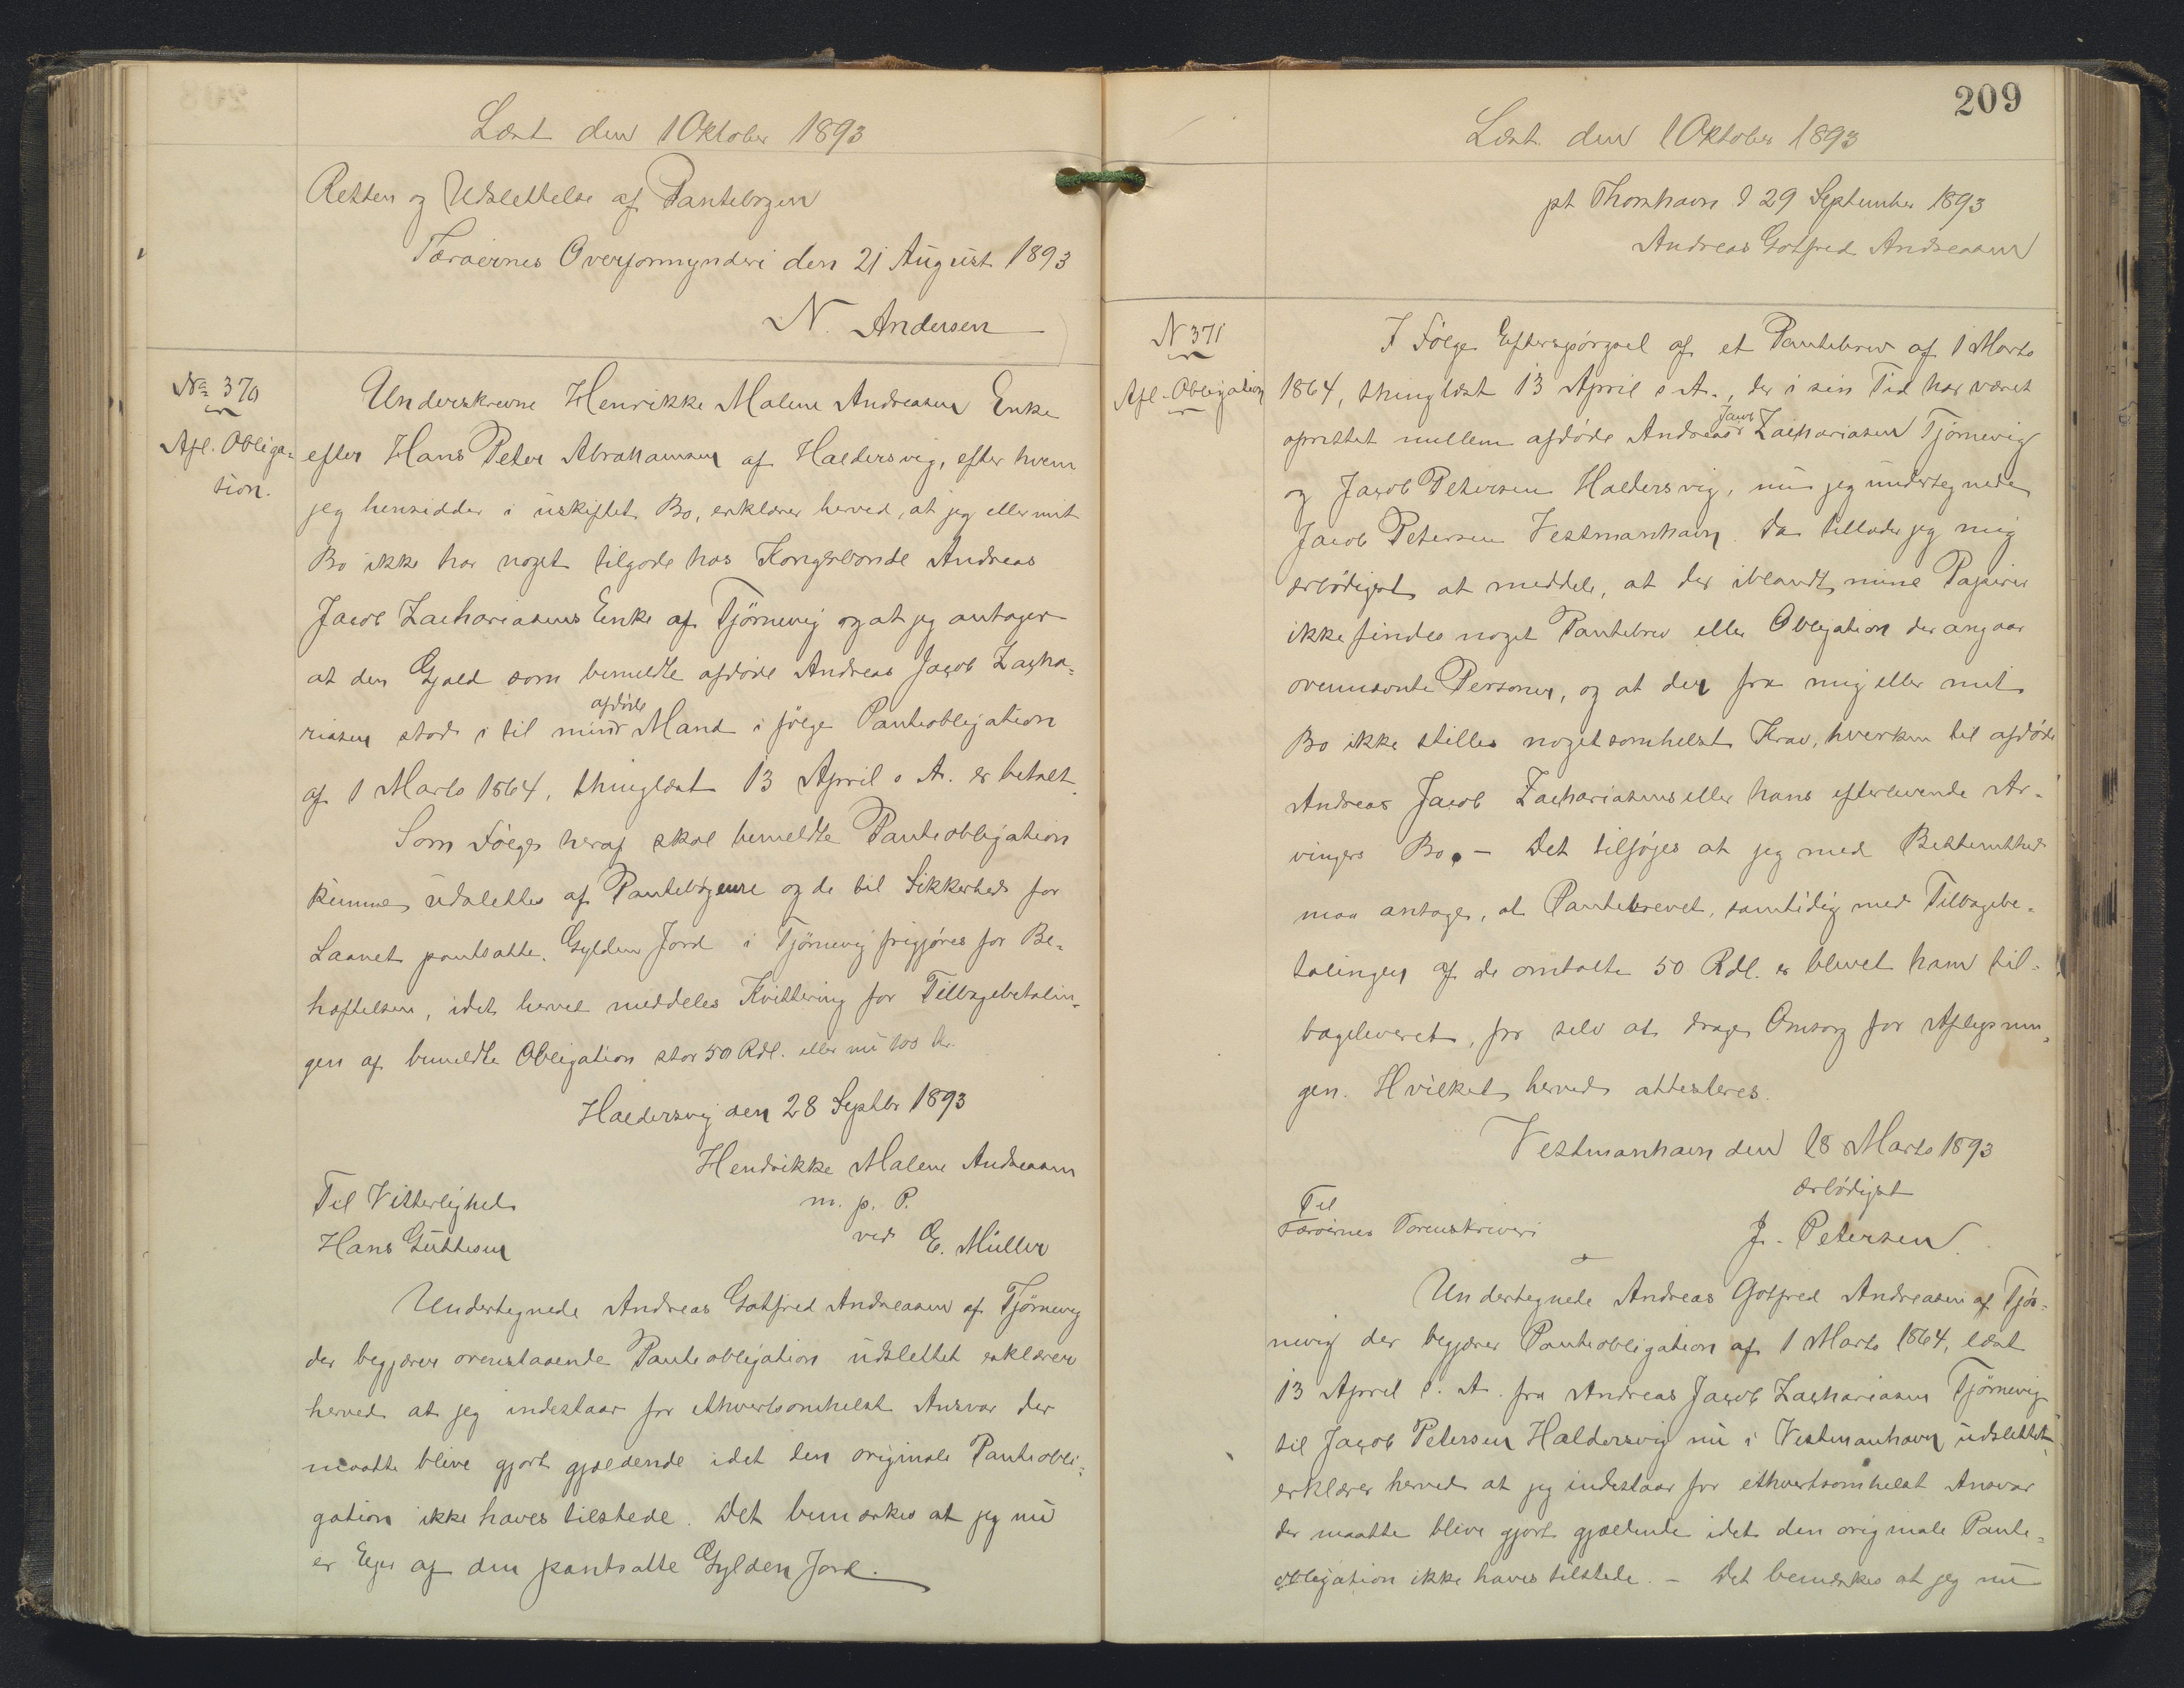 Læst den 1 Oktober 1893
Retten og Udslettelse af Pantebogen
Færøernes Overformynderi den 21 August 1893
N. Andersen
No 370
Afl. Obliga=
tion.
Underskrevne Henrikke Malene Andreasen Enke
efter Hans Peter Abrahamsen af Haldersvig, efter hvem
jeg hensidder i uskiftet Bo, erklærer herved, at jeg eller mit
Bo ikke har noget tilgode hos Kongsbonde Andreas
Jacob Zachariasens Enke af Tjörnevig og at jeg antager
at den Gjæld som bemeldte afdøde Andreas Jacob Zacha=
riasen stod i til min afdøde Mand i følge Panteobligation
af 1 Marts 1864, thinglæst 13 April s. A. er betalt.
Som Følge heraf skal bemeldte Panteobligation
kunne udslettes af Pantebøgerne og de til Sikkerhed for
Laanet pantsatte Gylden Jord i Tjörnevig frigjøres for Be=
hæftelsen, idet herved meddeles Kvittering for Tilbagebetalin=
gen af bemeldte Obligation stor 50 Rdl. eller nu 100 Kr.
Haldersvig den 28 Septbr 1893
Hendrikke Malene Andreasen
m. p. P.
ved E. Müller
Til Vitterlighed
Hans Guttesen
Undertegnede Andreas Gotfred Andreasen af Tjörnevig
der begjærer ovenstaaende Panteobligation udslettet erklærer
herved at jeg indestaar for ethvertsomhelst Ansvar der
maatte blive gjort gjældende idet den originale Panteobli=
gation ikke haves tilstede. Det bemærkes at jeg nu
er Ejer af den pantsatte Gylden Jord.
209
Læst den 1 Oktober 1893
pt Thorshavn d 29 September 1893
Andreas Gotfred Andreasen
N 371
Afl. Obligation
I Følge Efterspørgsel af et Pantebrev af 1 Marts
1864, thinglæst 13 April s. A., der i sin Tid har været
oprettet mellem afdöde Andreas Jacob Zachariasen Tjörnevig
og Jacob Petersen Haldersvig, nu jeg undertegnede
Jacob Petersen Vestmanhavn. Da tillader jeg mig
ærbödigst at meddele, at der iblandt mine Papirer
ikke findes noget Pantebrev eller Obligation der angaar
ovennævnte Personer, og at der fra mig eller mit
Bo ikke stilles nogetsomhelst Krav, hverken til afdöde
Andreas Jacob Zachariasens eller hans efterlevende Ar=
vingers Bo. – Det tilføjes at jeg med Bestemthed
maa antage, at Pantebrevet, samtidig med Tilbagebe=
talingen af de omtalte 50 Rdl. er blevet ham til=
bageleveret, for selv at drage Omsorg for Aflysnin=
gen. Hvilket herved attesteres.
Vestmanhavn den 18 Marts 1893
ærbödigst
J. Petersen
Til
Færøernes Sorenskriveri
Undertegnede Andreas Gotfred Andreasen af Tjör=
nevig der begjærer Panteobligation af 1 Marts 1864, læst
13 April s. A. fra Andreas Jacob Zachariasen Tjörnevig
til Jacob Petersen Haldersvig nu i Vestmanhavn udslettet
erklærer herved at jeg indestaar for ethvertsomhelst Ansvar
der maatte blive gjort gjældende idet den originale Pante=
obligation ikke haves tilstede. – Det bemærkes at jeg nu